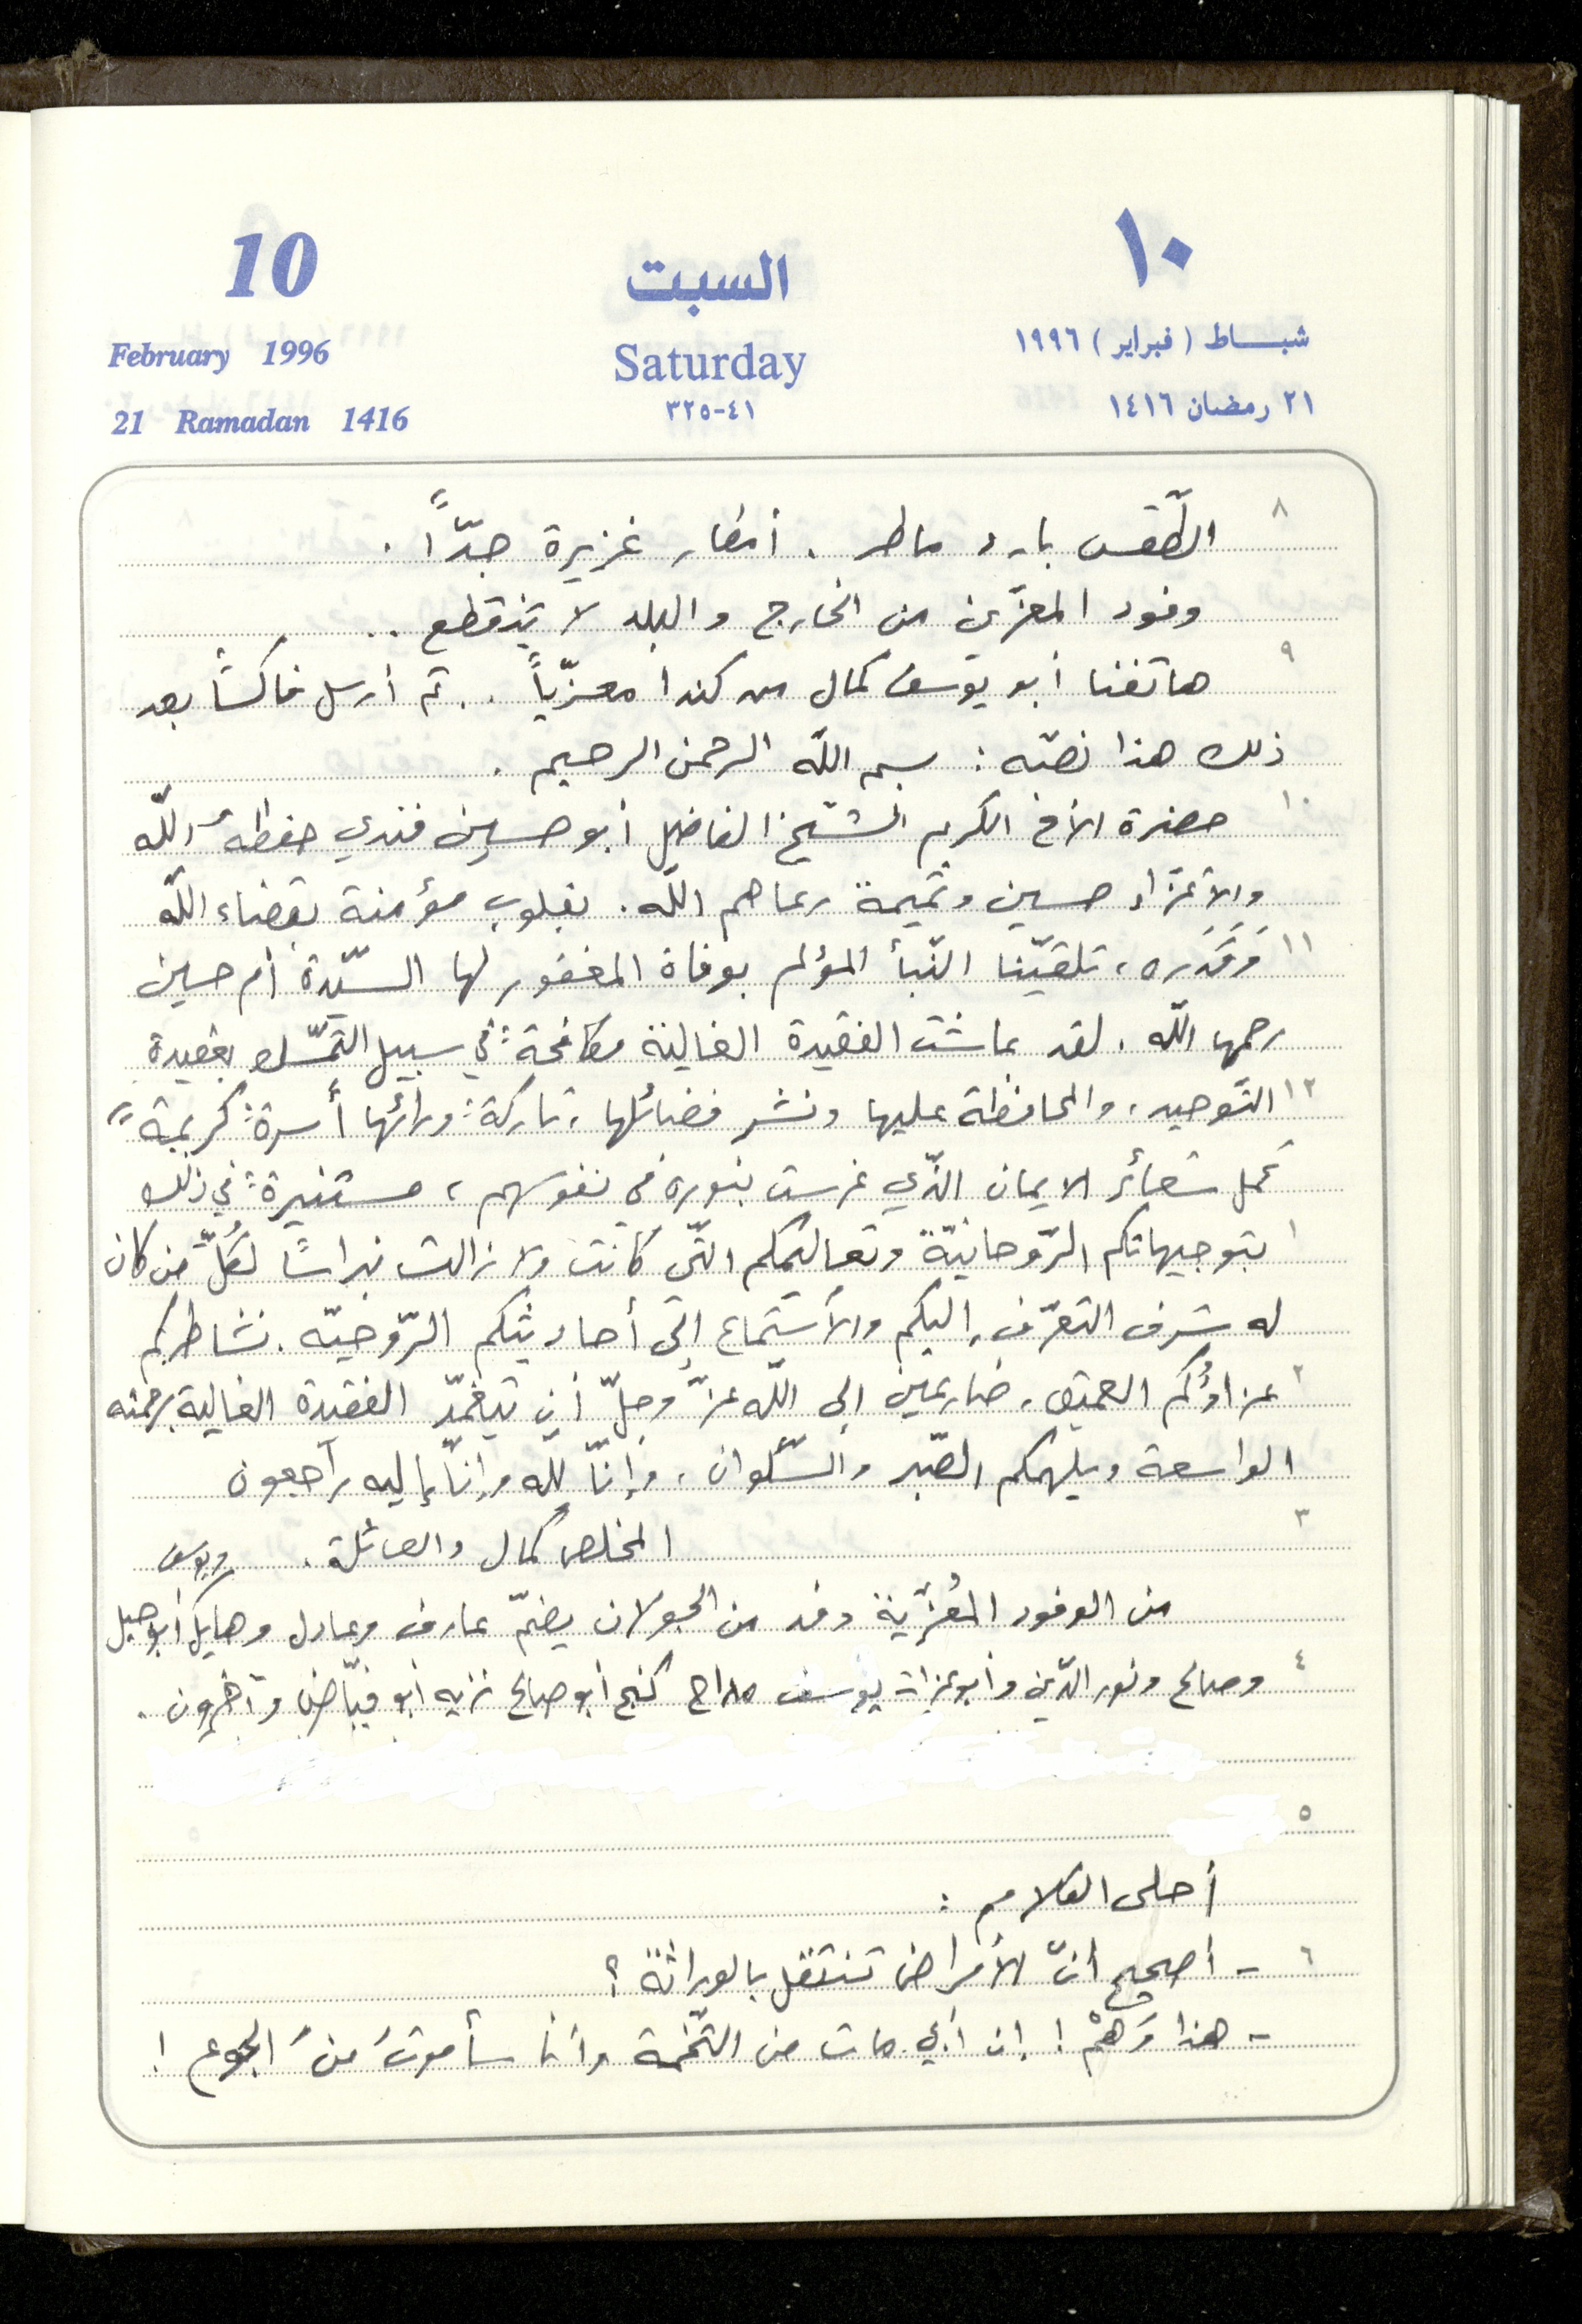 10
السبت
١٠
February 1996
Saturday
شباط (فبراير) ١٩٩٦
21 Ramadan 1416
٤١-٣٢٥
٢١ رمضان ١٤١٦
٨ الطّقس بارد ماطر . أمطار غزيرة جدّاً .
وفود المعزّين من الخارج والبلد لا تنقطع ..
٩ هاتفنا أبو يوسف كمال من كندا معزّياً .. ثم أرسل فاكساً بعد
ذلك هذا نصّه : بسم اللّه الرحمن الرحيم .
١٠ حضرة الأخ الكريم الشّيخ الفاضل أبو حسين فندي حفظهُ اللّه
والأعزّاء حسين وتميمة رعاهم اللّه . بقلوب مؤمنة بقضاء اللّه
١١ وَقَدَره ، تلقيّنا النّبأ المؤلم بوفاة المغفور لها السيّدة أم حسين
رحمها اللّه . لقد عاشت الفقيدة الغالية مكافحةً في سبيل التمسّك بعقيدة
١٢ التّوحيد ، والمحافظة عليها ونشر فضائلها ، تاركةً ورائها أسرةً كريمةً
تحمل شعائر الايمان الذّي غرست بنوره في نفوسهم ، مستنيرةً في ذلك
١ بتوجيهاتكم الرّوحانيّة وتعاليمكم التّي كانت ولا زالت نبراساً لكُلّ من كان
له شرف التعرّف إليكم والأستماع إلى أحاديثكم الرّوحيّه . نشاطركم
٢ عزاؤُكم العميق ، ضارعين الى اللّه عزّ وجلّ أن يتغمّد الفقيدة الغالية برحمته
الواسعة ويلهمكم الصّبر والسّلوان ، وإنّا للّه وإنّا إليه راجعون
٣ المخلص كمال والعائلة .
ويوسف
من الوفود المُعزّية وفد من الجولان يضمّ عارف وعادل وهايل أبو جبل
٤ وصالح ونور الدّين وأبو عزات يوسف مداح كنج أبو صالح نزيه أبو فيّاض وآخرون .
٥
أحلى الكلام :
٦ - أصحيح أنّ الأمراض تنتقل بالوراثة ؟
- هذا وَهْمٌ ! إن أبي مات من التّخمة وأنا سأموتُ منَ الجوع !